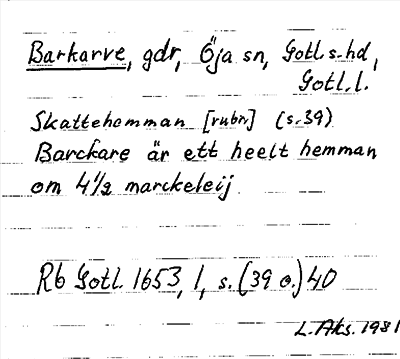 Barkarve, gdr, Öja sn, Gotl.s.hd,
Gotl.l.
Skattehemman [rubr] (s.39)
Barckare är ett heelt hemman
om 4 1/2 marckeleij
Rb Gotl. 1653, 1, s. (39 o.) 40
L. Aks. 1981